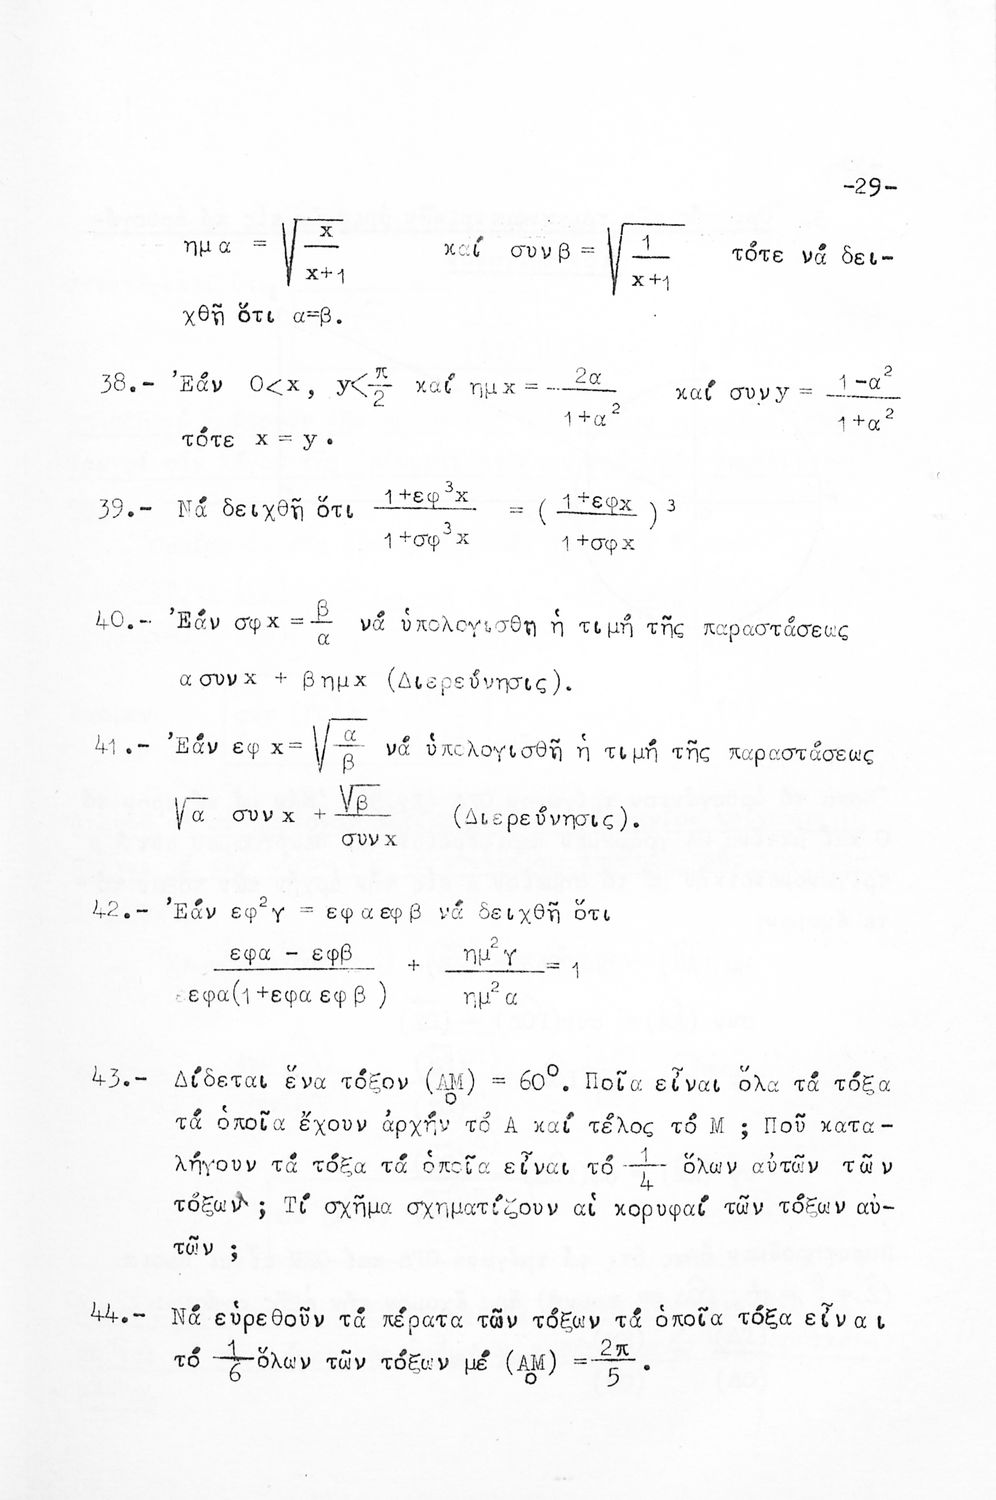 -29-
ημα = √(x/(x+1)) καί συνβ = √(1/(x+1)) τότε νά δει-
χθῆ ὅτι α=β.
38.- Ἐάν 0<x, y<π/2 καί ημx = 2α/(1+α²) καί συνy = (1-α²)/(1+α²)
τότε x = y.
39.- Νά δειχθῆ ὅτι (1+εφ³x)/(1+σφ³x) = ((1+εφx)/(1+σφx))³
40.- Ἐάν σφx = β/α νά ὑπολογισθῆ ἡ τιμή τῆς παραστάσεως
ασυνx + βημx (Διερεύνησις).
41.- Ἐάν εφx = √(α/β) νά ὑπολογισθῆ ἡ τιμή τῆς παραστάσεως
√α συνx + √β/συνx (Διερεύνησις).
42.- Ἐάν εφ²γ = εφαεφβ νά δειχθῆ ὅτι
(εφα - εφβ)/(εφα(1+εφαεφβ)) + ημ²γ/ημ²α = 1
43.- Δίδεται ἕνα τόξον (AM) = 60°. Ποῖα εἶναι ὅλα τά τόξα
τά ὁποῖα ἔχουν ἀρχήν τό Α καί τέλος τό Μ ; Ποῦ κατα-
λήγουν τά τόξα τά ὁποῖα εἶναι τό 1/4 ὅλων αὐτῶν τῶν
τόξων ; Τί σχῆμα σχηματίζουν αἱ κορυφαί τῶν τόξων αὐ-
τῶν ;
44.- Νά εὑρεθοῦν τά πέρατα τῶν τόξων τά ὁποῖα τόξα εἶναι
τό 1/6 ὅλων τῶν τόξων μέ (AM) = 2π/5.